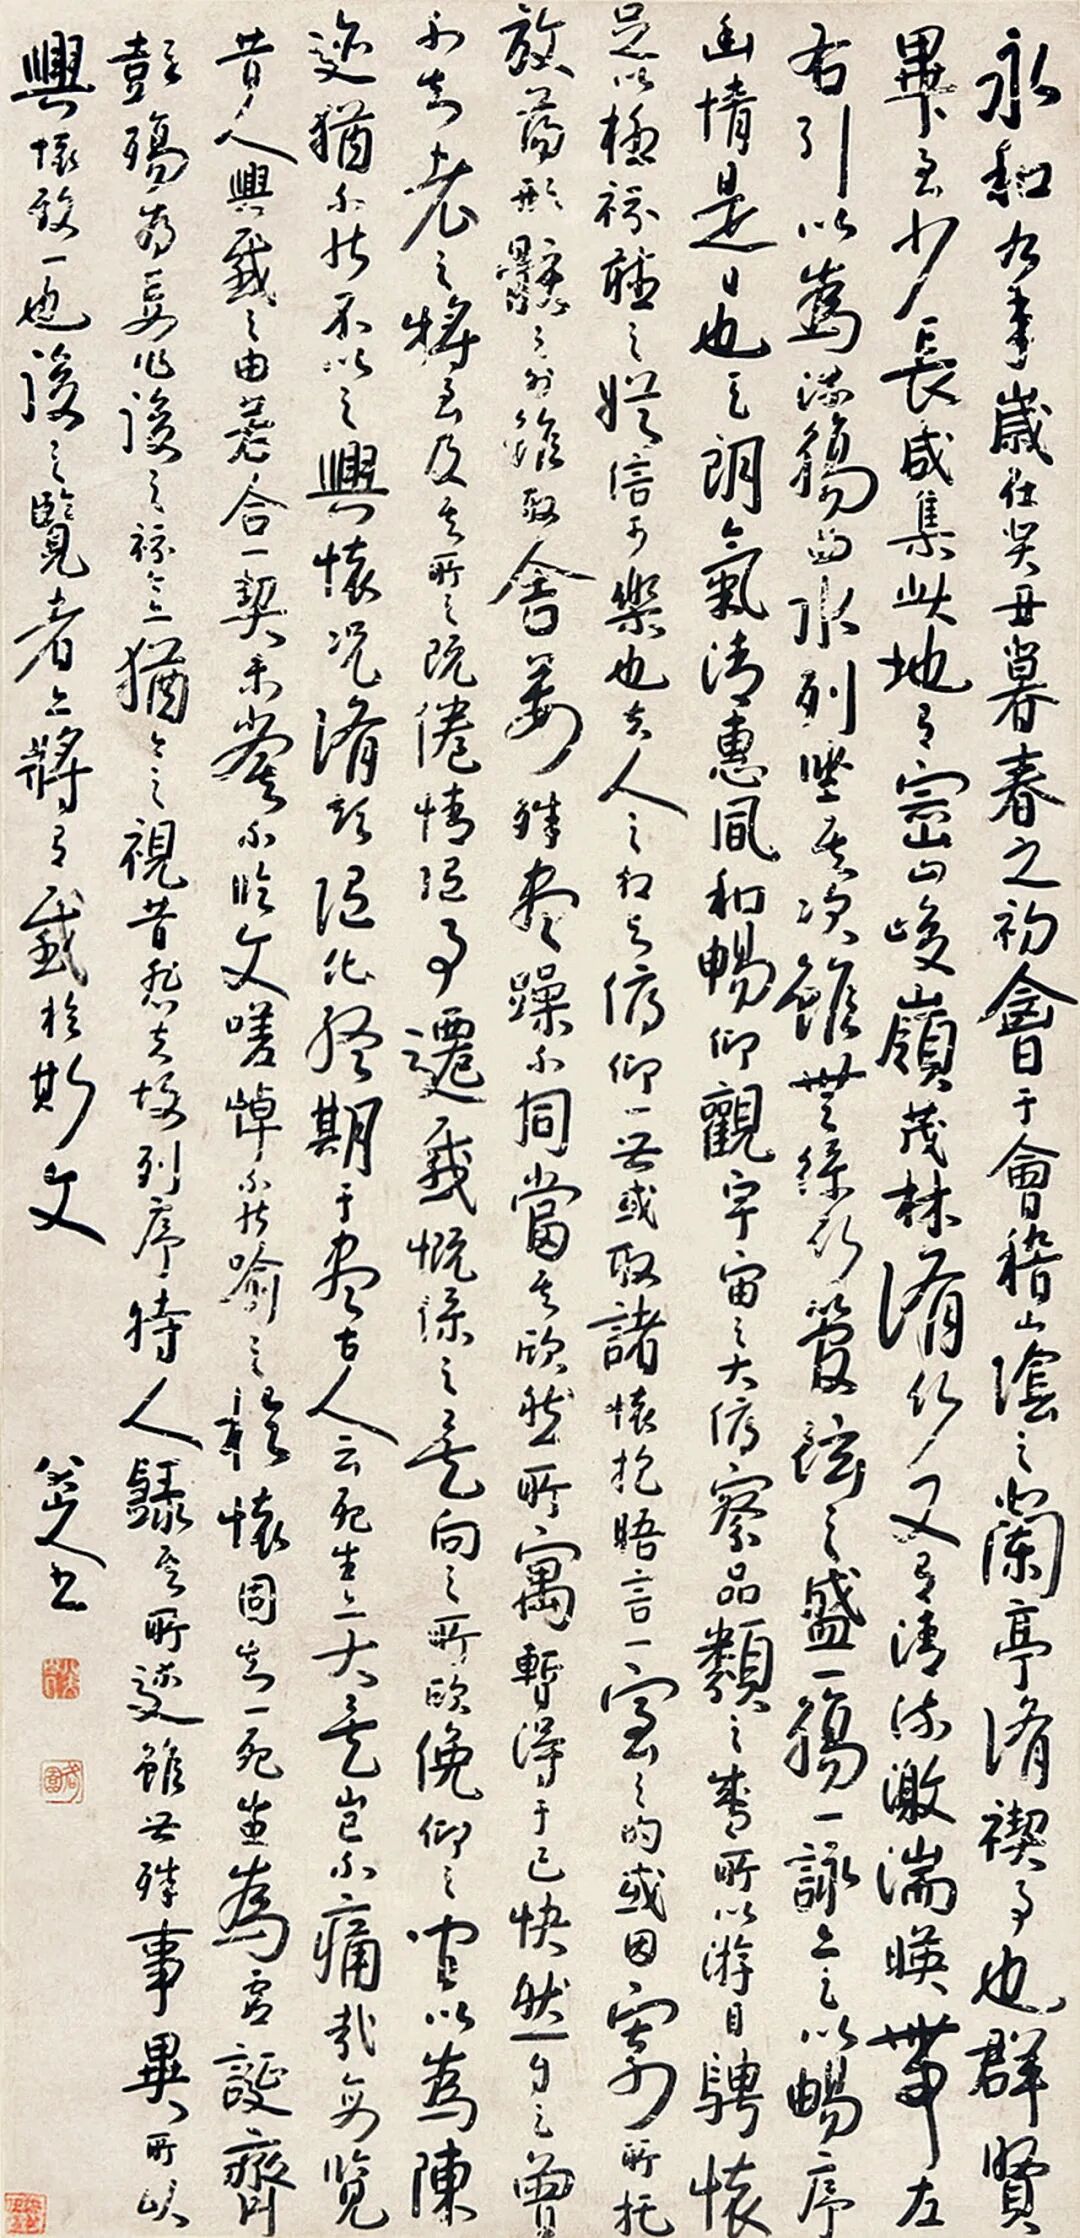 永和九年歲在癸丑暮春之初會于會稽山陰之蘭亭脩禊事也群賢
畢至少長咸集此地有崇山峻嶺茂林脩竹又有清流激湍暎帶左
右引以為流觴曲水列坐其次雖無絲竹管絃之盛一觴一詠亦足以暢序
幽情是日也天朗氣清惠風和暢仰觀宇宙之大俯察品類之盛所以游目騁懷
足以極視聽之娛信可樂也夫人之相與俯仰一世或取諸懷抱晤言一室之內或因寄所托
放蕩形骸之外雖取舍萬殊靜躁不同當其欣然所寓暫得于己快然自足曾
不知老之將至及其所之既倦情隨事遷感慨係之矣向之所欣俛仰之間以為陳
迹猶不能不以之興懷況脩短隨化終期于盡古人云死生亦大矣豈不痛哉每覽
昔人興感之由若合一契未嘗不臨文嗟悼不能喻之於懷固知一死生為虛誕齊
彭殤為妄作後之視今亦猶今之視昔悲夫故列序時人錄其所述雖世殊事異所以
興懷致一也後之覽者亦將有感於斯文
八大山人書